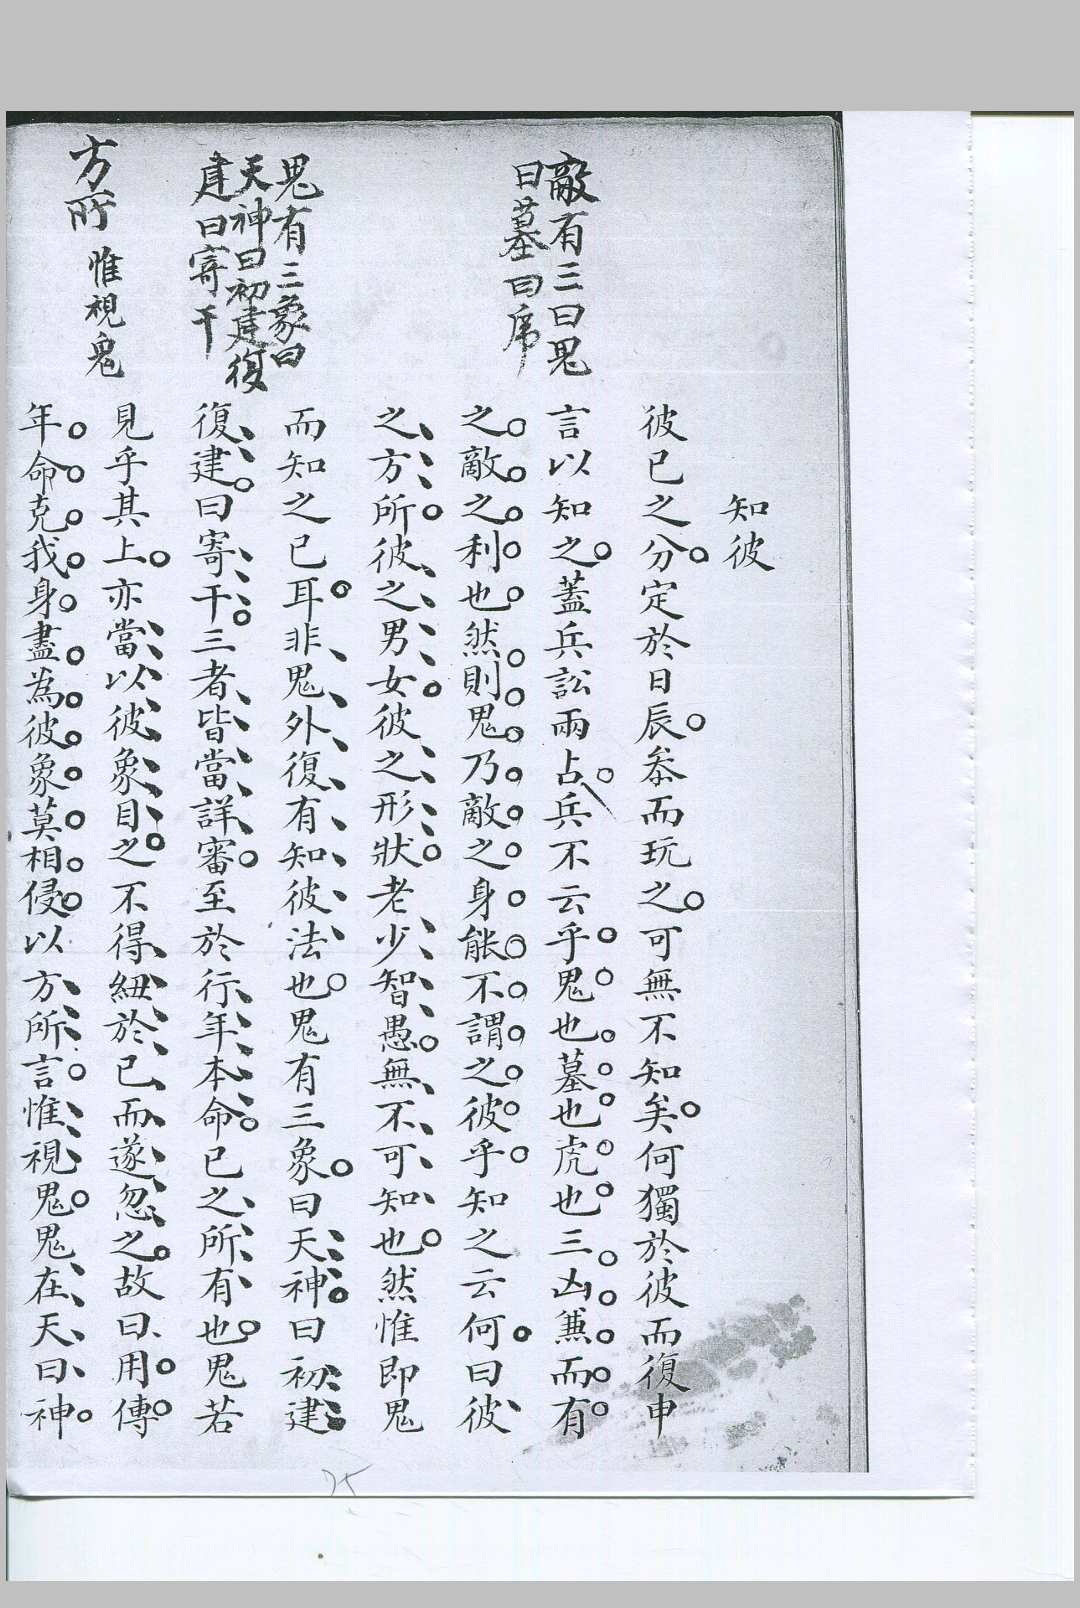 知彼
彼已之分定於日辰叅而玩之可無不知矣何獨於彼而復申
言以知之蓋兵訟兩占兵不云乎鬼也墓也虎也三凶兼而有
之敵之利也然則鬼乃敵之身能不謂之彼乎知之云何曰彼
之方所彼之男女彼之形狀老少智愚無不可知也然惟即鬼
而知之已耳非鬼外復有知彼法也鬼有三象曰天神曰初建
復建曰寄干三者皆當詳審至於行年本命已之所有也鬼若
見乎其上亦當以彼象目之不得紐於已而遂忽之故曰用傳
年命克我身盡為彼象莫相侵以方所言惟視鬼鬼在天曰神
敵有三曰鬼
曰墓曰虎
鬼有三象曰
天神曰初建復
建曰寄干
方所
惟視鬼
75